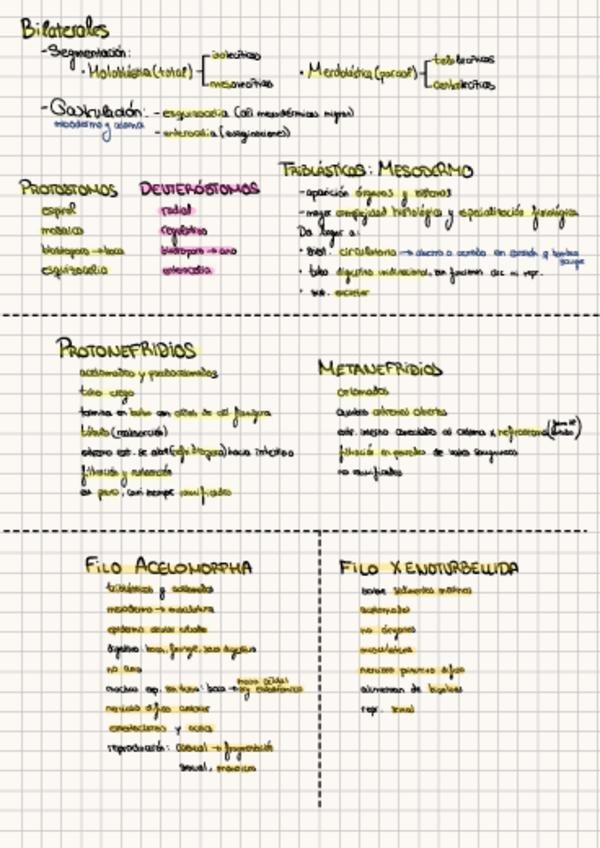 Bilaterales
-Segmentación:
• Holoblástica (total) isolecíticos
mesolecíticos
• Meroblástica (parcial) telolecíticos
centrolecíticos
-Gastrulación: - esquizocelia (cél mesodérmicas migran)
mesodermo y celoma - enterocelia (evaginaciones)
TRIBLÁSTICOS: MESODERMO
-aparición órganos y sistemas
-mayor complejidad histológica y especialización fisiológica
Da lugar a:
• sist. circulatorio → abierto o cerrado en corazón q bombea sangre
• tubo digestivo unidireccional, con funciones dic ni repr.
• sist. excretor
PROTÓSTOMOS
espiral
mosaico
blastoporo → boca
esquizocelia
DEUTERÓSTOMOS
radial
regulativo
blastoporo → ano
enterocelia
PROTONEFRIDIOS
acelomados y pseudocelomados
tubo ciego
termina en bulbo con cilios de cél flamígera
túbulo (reabsorción)
extremo ext. se abre (nefridioporo) hacia
filtración y
en pares, casi siempre ramificados
METANEFRIDIOS
celomados
ambos extremos abiertos
extr. interno conectado al celoma x nefrostoma
filtración en paredes de vasos sanguíneos
no ramificados
FILO ACELOMORPHA
triblásticos y acelomados
mesodermo → musculatura
epidermis celular ciliada
digestivo: boca, faringe, saco digestivo
no ano
muchas esp. sin tubo: boca →
nervioso difuso anterior
estatocistos y ocelos
reproducción: asexual → fragmentación
sexual,
FILO XENOTURBELLIDA
sobre sedimentos marinos
acelomados
no órganos
musculatura
nervioso primitivo difuso
alimentan de bivalvos
repr. sexual